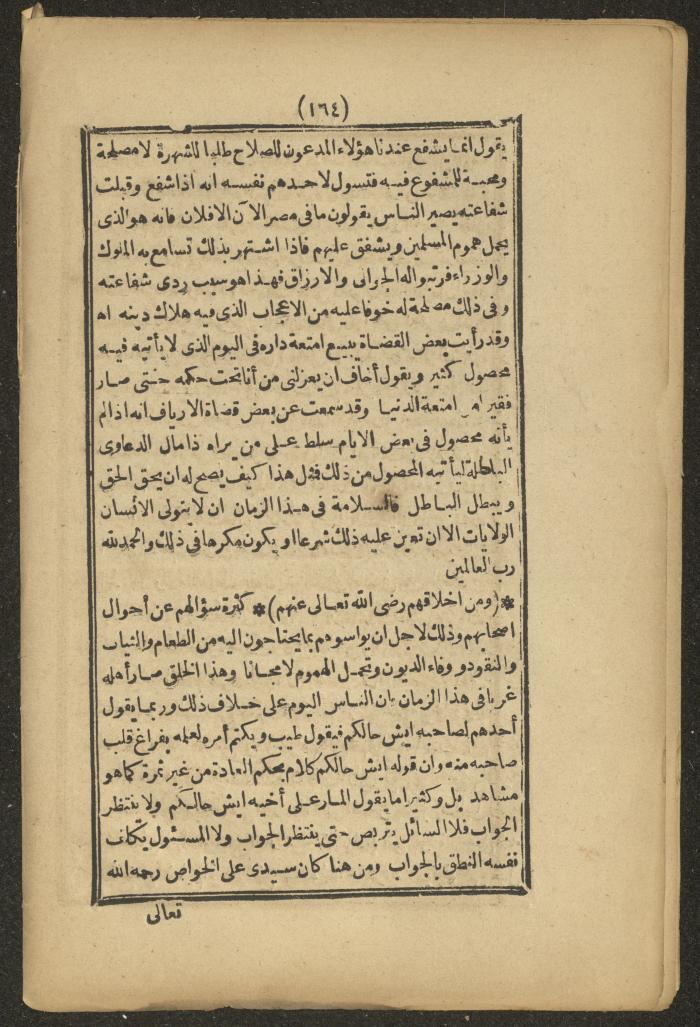 (١٦٤)
يقول انما يشفع عندنا هؤلاء المدعون للصلاح طلبا للشهرة لا مصلحة
ومحبة للمشفوع فيه فتسول لاحدهم نفسه انه اذا شفع وقبلت
شفاعته يصير الناس يقولون ما فى مصر الآن الا فلان فانه هو الذى
يحمل هموم المسلمين ويشفق عليهم فاذا اشتهر بذلك تسامع به الملوك
والوزراء فرتبوا له الجوالى والارزاق فهذا هو سبب ردى شفاعته
وفى ذلك مصلحة له خوفا عليه من الاعجاب الذى فيه هلاك دينه اه
وقد رأيت بعض القضاة يبيع امتعة داره فى اليوم الذى لا يأتيه فيه
محصول كثير ويقول أخاف ان يعزلنى من أنا تحت حكمه حتى صار
فقيرا من امتعة الدنيا وقد سمعت عن بعض قضاة الارياف انه اذا لم
يأته محصول فى بعض الايام سلط على من يراه ذا مال الدعاوى
الباطلة ليأتيه المحصول من ذلك فمثل هذا كيف يصح له ان يحق الحق
ويبطل الباطل فالسلامة فى هذا الزمان ان لا يتولى الانسان
الولايات الا ان تعين عليه ذلك شرعا او يكون مكرها فى ذلك والحمد لله
رب العالمين
*(ومن اخلاقهم رضى الله تعالى عنهم)* كثرة سؤالهم عن أحوال
اصحابهم وذلك لاجل ان يواسوهم بما يحتاجون اليه من الطعام والثياب
والنقود ووفاء الديون وتحمل الهموم لا مجانا وهذا الخلق صار أهله
غربا فى هذا الزمان بان الناس اليوم على خلاف ذلك وربما يقول
أحدهم لصاحبه ايش حالكم فيقول طيب ويكتم أمره لعلمه بفراغ قلب
صاحبه منه وان قوله ايش حالكم كلام بحكم العادة من غير ثمرة كما هو
مشاهد بل وكثيرا ما يقول المار على أخيه ايش حالكم ولا ينتظر
الجواب فلا السائل يتربص حتى ينتظر الجواب ولا المسئول يتكلف
نفسه النطق بالجواب ومن هنا كان سيدى على الخواص رحمه الله
تعالى